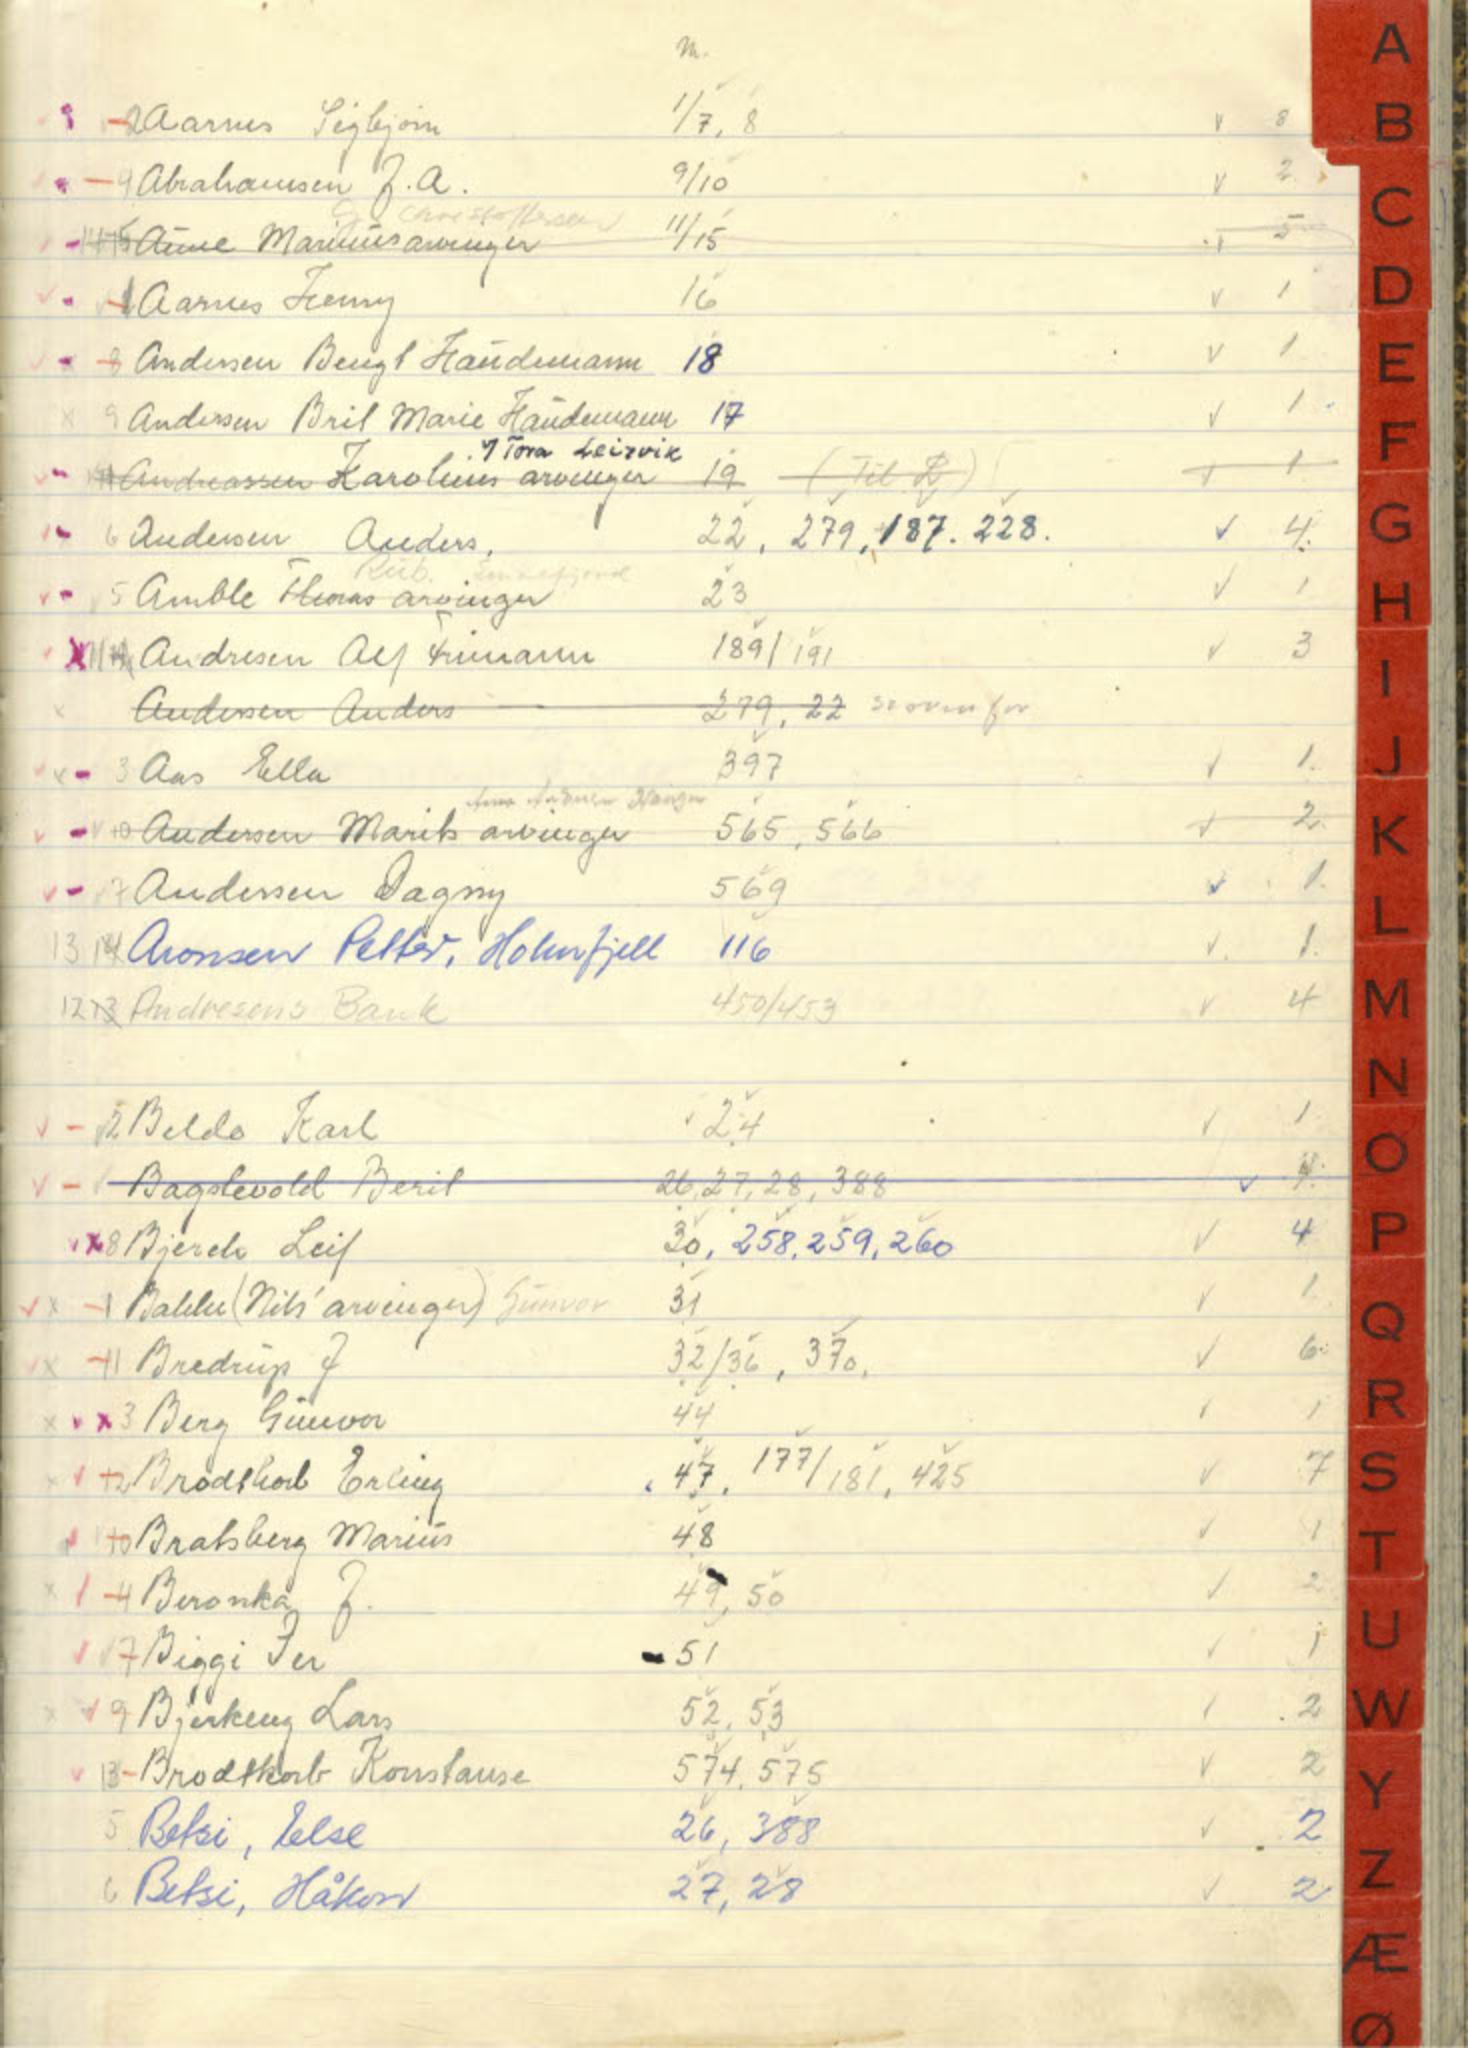 m.
2 Aarnes Sigbjørn 1/7, 8 v 8
9 Abrahamsen J. A. 9/10 v 2
G. Christoffersen
Aune Marius arvinger 11/15 v 5
1 Aarnes Henny 16 v 1
8 Andersen Bengt Haudemann 18 v 1
9 Andersen Brit Marie Haudemann 17 v 1
Tora Leirvik
Andreassen Karolius arvinger 19 (Til L) v 1
6 Andersen Anders, 22, 279, 187. 228. v 4.
5 Amble Thomas arvinger 23 v 1
Andresen Alf Frimann 189/191 v 3
Andersen Anders 279, 22 se ovenfor
3 Aas Ella 397 v 1.
10 Andersen Marits arvinger 565, 566 v 2.
7 Andersen Dagny 569 v 1.
13 14 Aronsen Petter, Holmfjell 116 v 1.
12 13 Andresens Bank 450/453 v 4
2 Beldo Karl 24 v 1
Bagslevold Beril 26, 27, 28, 388 v
8 Bjerch Leif 30, 258, 259, 260 v 4
1 Bahlu (Nils' arvinger) Gunvor 31 v 1
11 Bredrup J 32/36, 370, v 6
3 Berg Gunvor 44 v 1
12 Brodtkorb Erling 47, 177/181, 425 v 7
10 Bratsberg Marius 48 v 1
4 Beronka J. 49, 50 v 2
7 Biggi Per 51 v 1
9 Bjerkeng Lars 52, 53 v 2
13 Brodtkorb Konstanse 574, 575 v 2
5 Betsi, Else 26, 388 v 2
6 Betsi, Håkon 27, 28 v 2
A
B
C
D
E
F
G
H
I
J
K
L
M
N
O
P
Q
R
S
T
U
W
Y
Z
Æ
Ø